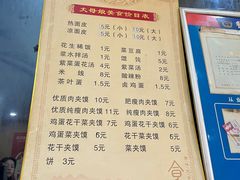 大母娘美食价目表
热面皮 5元（小）10元（大）
凉面皮 5元（小）10元（大）
花生稀饭 1元 菜豆腐 3元
浆水拌汤 3元 馄饨 5元
紫菜蛋花汤 4元 紫菜汤 2元
米线 8元 酸辣粉 8元
茶叶蛋 1元 卤鸡蛋 2元
优质肉夹馍 10元 肥瘦肉夹馍 8元
优质纯瘦肉夹馍 11元 纯瘦肉夹馍 9元
鸡蛋花干夹馍 7元 鸡蛋夹馍 6元
鸡蛋菜夹馍 6元 花干菜夹馍 6元
花干夹馍 5元 菜夹馍 5元
饼 3元